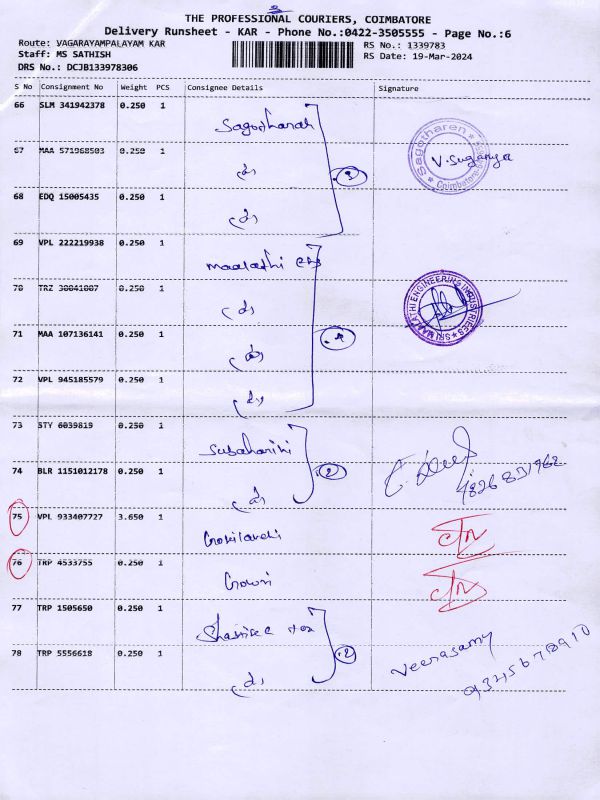 THE PROFESSIONAL COURIERS, COIMBATORE
Delivery Runsheet - KAR - Phone No.:0422-3505555 - Page No.:6
Route: VAGARAYAMPALAYAM KAR
Staff: MS SATHISH
DRS No.: DCJB133978306
RS No.: 1339783
RS Date: 19-Mar-2024
S No Consignment No Weight PCS Consignee Details Signature
66 SLM 341942378 0.250 1
67 MAA 571968503 0.250 1
3
V. Suganya
68 EDQ 15005435 0.250 1
69 VPL 222219938 0.250 1
70 TRZ 30041007 0.250 1
SRI MAALATHI ENGINEERING INDUSTRIES
71 MAA 107136141 0.250 1
4
72 VPL 945185579 0.250 1
73 STY 6039819 0.250 1
Subaharini
74 BLR 1151012178 0.250 1
2
75 VPL 933407727 3.650 1
76 TRP 4533755 0.250 1
Gowri
77 TRP 1505650 0.250 1
78 TRP 5556618 0.250 1
2
Veerasamy
9345678910